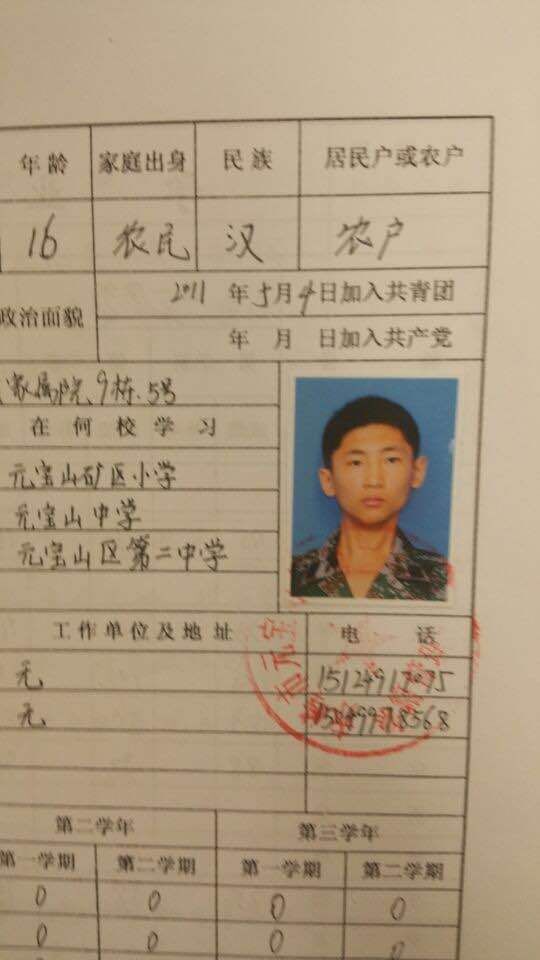 年龄 家庭出身 民族 居民户或农户
16 农民 汉 农户
政治面貌
2011 年 5 月 4 日加入共青团
年 月 日加入共产党
家属院、9栋.5号
在何校学习
元宝山矿区小学
元宝山中学
元宝山区第二中学
工作单位及地址 电话
无
无
第二学年 第三学年
第一学期 第二学期 第一学期 第二学期
0 0 0 0
0 0 0 0